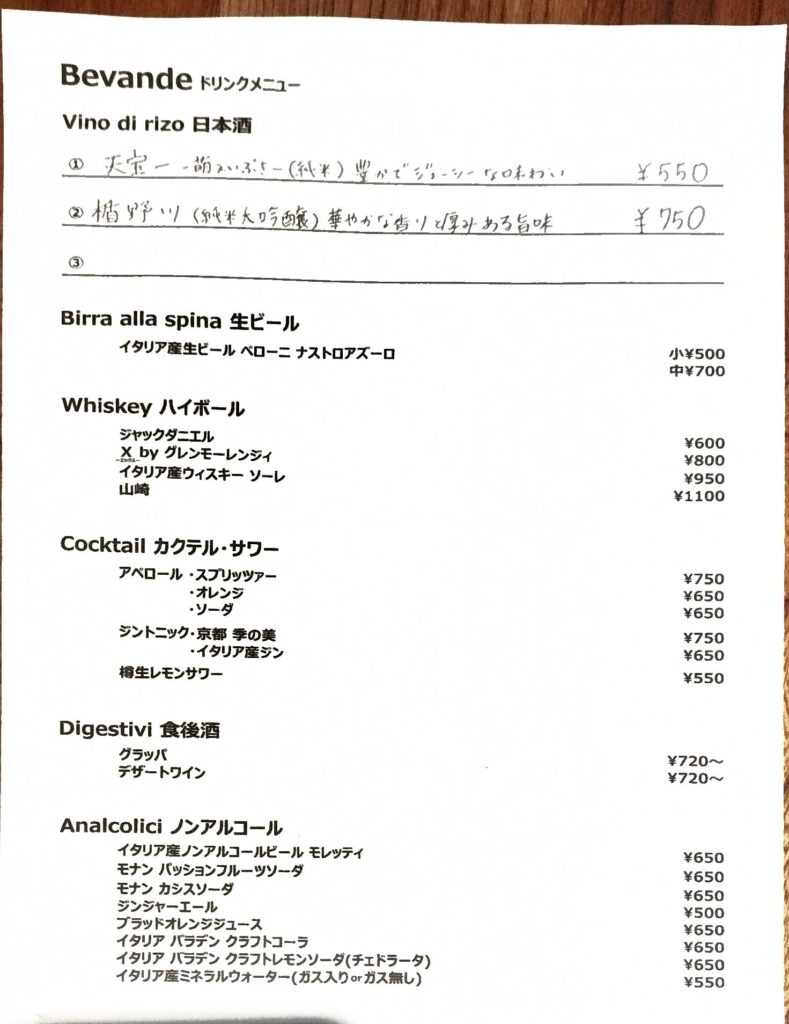 Bevande ドリンクメニュー
Vino di rizo 日本酒
① 天宝一 -萌えいぶき- (純米) 豊かでジューシーな味わい ¥550
② 楯野川 (純米大吟醸) 華やかな香りと厚みある旨味 ¥750
③
Birra alla spina 生ビール
イタリア産生ビール ペローニ ナストロアズーロ 小¥500
中¥700
Whiskey ハイボール
ジャックダニエル ¥600
X by グレンモーレンジィ ¥800
イタリア産ウィスキー ソーレ ¥950
山崎 ¥1100
Cocktail カクテル・サワー
アペロール ・スプリッツァー ¥750
・オレンジ ¥650
・ソーダ ¥650
ジントニック・京都 季の美 ¥750
・イタリア産ジン ¥650
樽生レモンサワー ¥550
Digestivi 食後酒
グラッパ ¥720～
デザートワイン ¥720～
Analcolici ノンアルコール
イタリア産ノンアルコールビール モレッティ ¥650
モナン パッションフルーツソーダ ¥650
モナン カシスソーダ ¥650
ジンジャーエール ¥500
ブラッドオレンジジュース ¥650
イタリア バラデン クラフトコーラ ¥650
イタリア バラデン クラフトレモンソーダ(チェドラータ) ¥650
イタリア産ミネラルウォーター(ガス入りorガス無し) ¥550